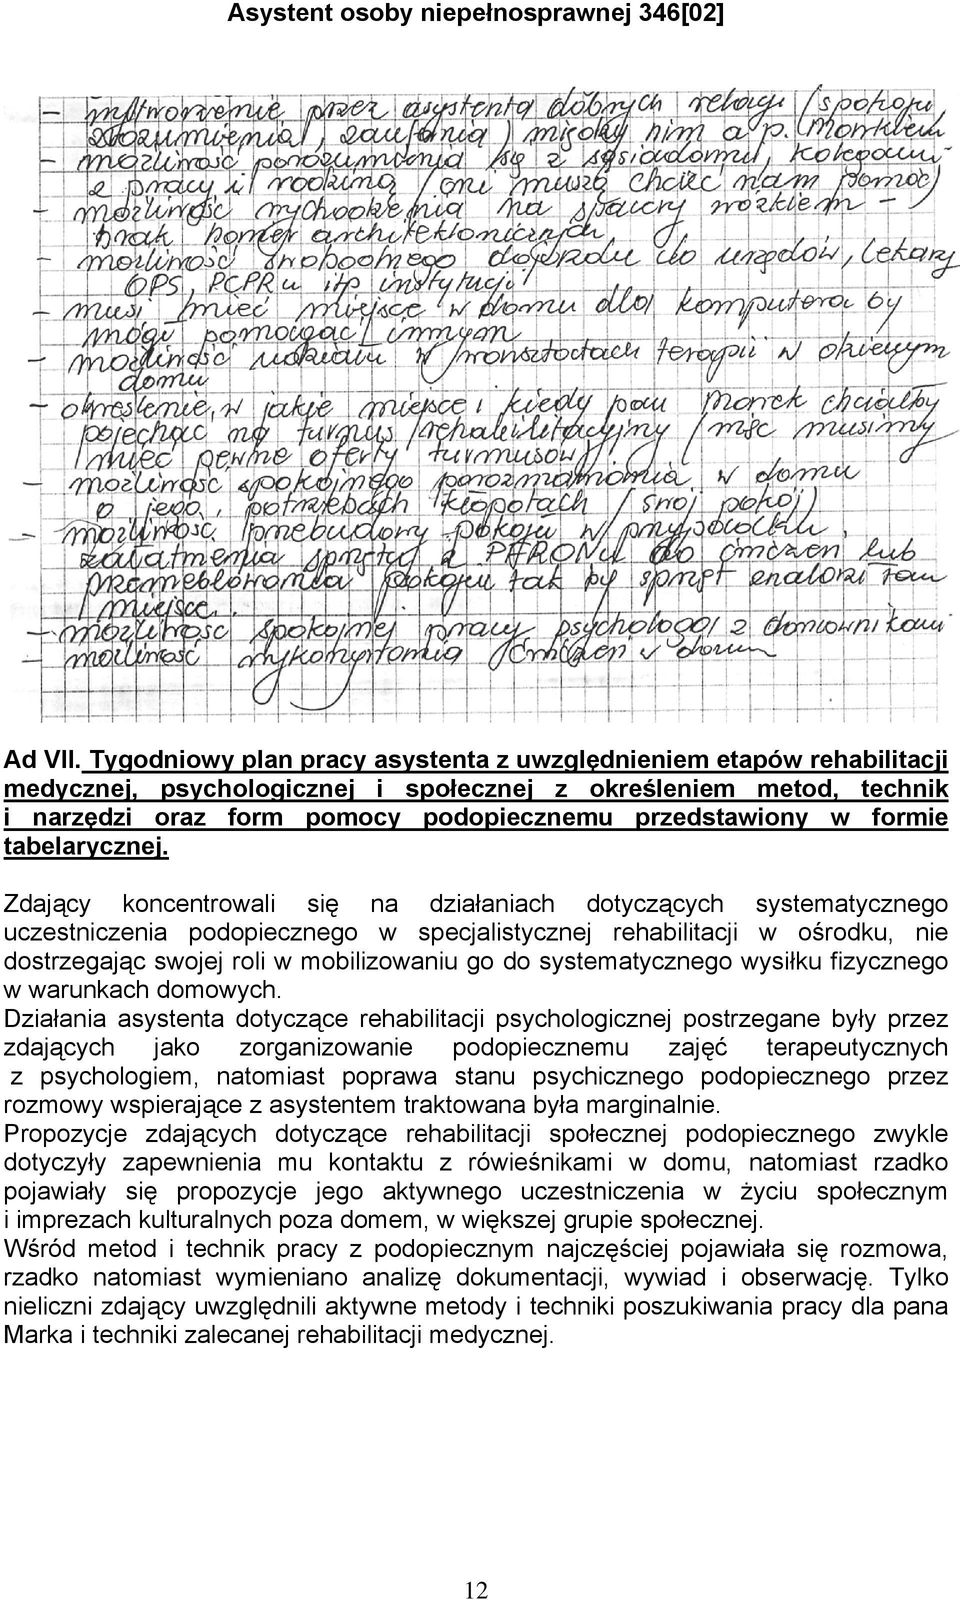 Asystent osoby niepełnosprawnej 346[02]
- wytworzenie przez asystenta dobrych relacji (spokoju,
zrozumienia, zaufania) między nim a p. (Markiem
- możliwość porozumienia się z sąsiadami, kolegami
z pracy i rodziną (oni muszą chcieć nam pomóc)
- możliwość wychodzenia na spacery wózkiem -)
brak barier architektonicznych
- możliwość swobodnego dojazdu do urzędów, lekarzy
OPS, PCPRu itp instytucji
- musi mieć miejsce w domu dla komputera by
mógł pomagać innym
- możliwość udziału w warsztatach terapii w dziennym
domu
- określenie, w jakie miejsce i kiedy pan Marek chciałby
pojechać na turnus rehabilitacyjny (więc musimy
mieć pewne oferty turnusów)
- możliwość spokojnego porozmawiania w domu
o jego potrzebach kłopotach (swój pokój)
- możliwość przebudowy pokoju w przypadku
załatwienia sprzętu z PFRONu do ćwiczeń lub
przemeblowania pokoju tak by sprzęt znalazł tam
miejsce.
- możliwość spokojnej pracy psychologa z domownikami
- możliwość wykonywania ćwiczeń w domu
Ad VII. Tygodniowy plan pracy asystenta z uwzględnieniem etapów rehabilitacji
medycznej, psychologicznej i społecznej z określeniem metod, technik
i narzędzi oraz form pomocy podopiecznemu przedstawiony w formie
tabelarycznej.
Zdający koncentrowali się na działaniach dotyczących systematycznego
uczestniczenia podopiecznego w specjalistycznej rehabilitacji w ośrodku, nie
dostrzegając swojej roli w mobilizowaniu go do systematycznego wysiłku fizycznego
w warunkach domowych.
Działania asystenta dotyczące rehabilitacji psychologicznej postrzegane były przez
zdających jako zorganizowanie podopiecznemu zajęć terapeutycznych
z psychologiem, natomiast poprawa stanu psychicznego podopiecznego przez
rozmowy wspierające z asystentem traktowana była marginalnie.
Propozycje zdających dotyczące rehabilitacji społecznej podopiecznego zwykle
dotyczyły zapewnienia mu kontaktu z rówieśnikami w domu, natomiast rzadko
pojawiały się propozycje jego aktywnego uczestniczenia w życiu społecznym
i imprezach kulturalnych poza domem, w większej grupie społecznej.
Wśród metod i technik pracy z podopiecznym najczęściej pojawiała się rozmowa,
rzadko natomiast wymieniano analizę dokumentacji, wywiad i obserwację. Tylko
nieliczni zdający uwzględnili aktywne metody i techniki poszukiwania pracy dla pana
Marka i techniki zalecanej rehabilitacji medycznej.
12